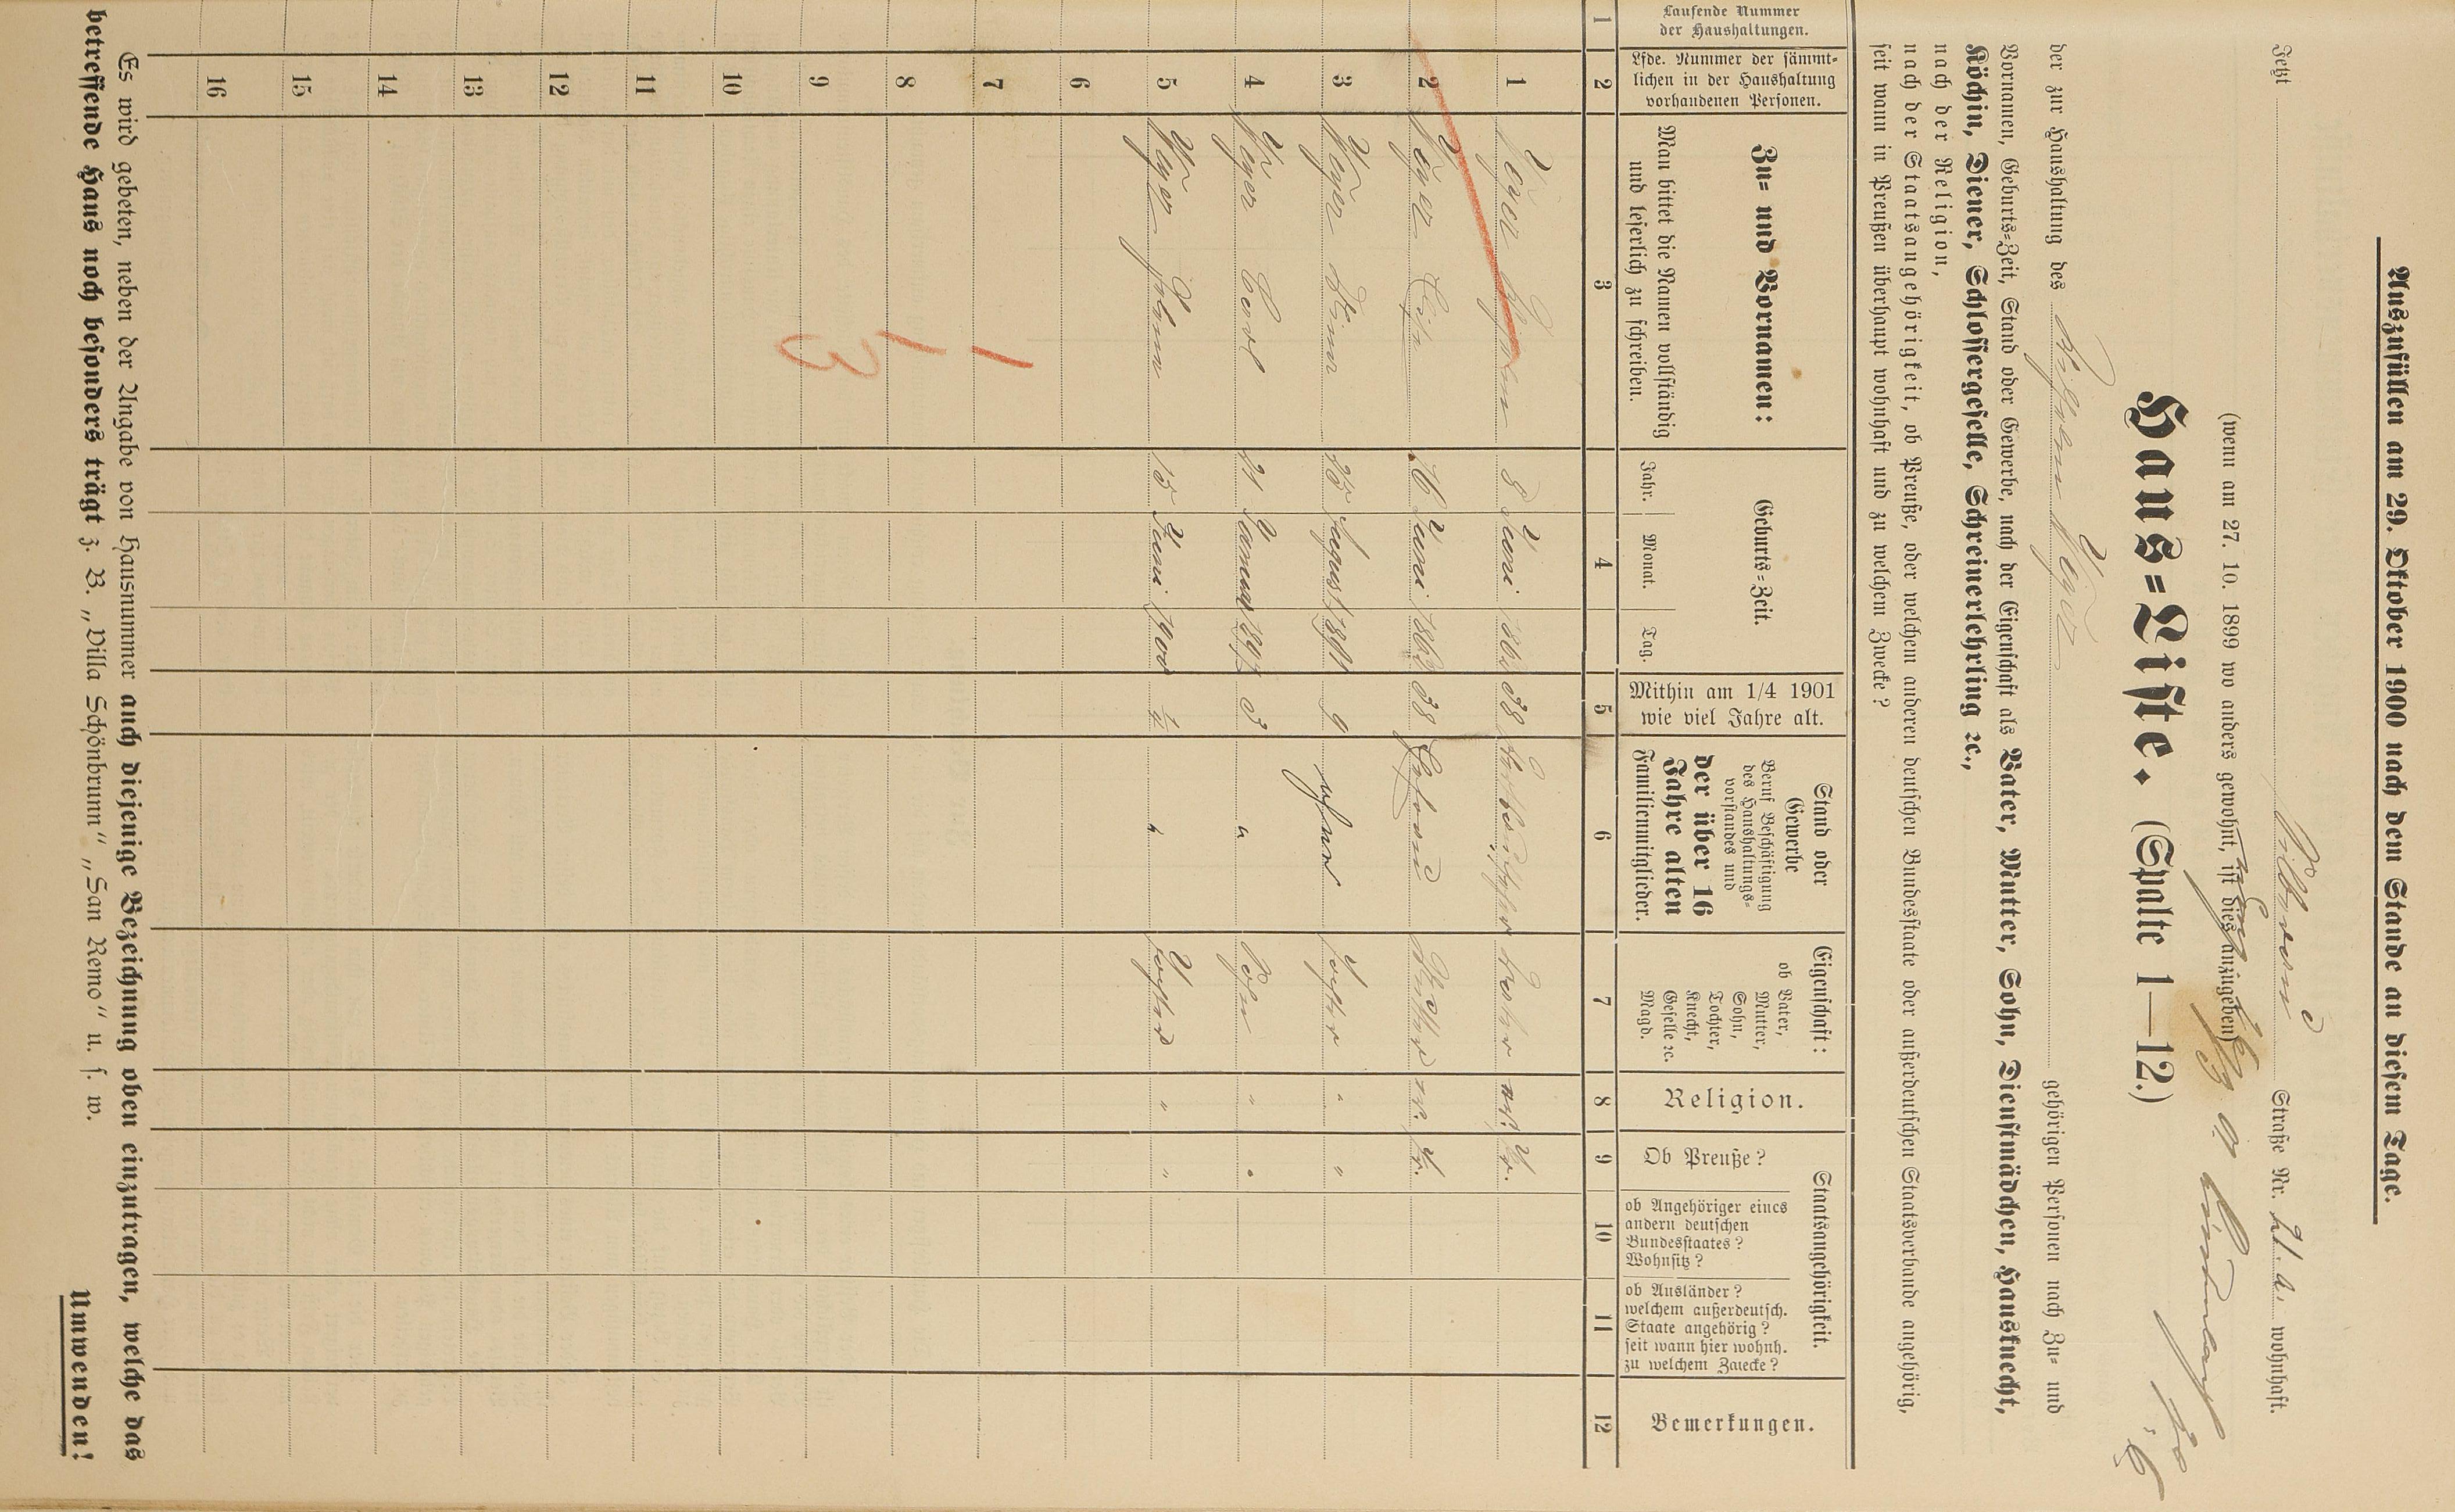 Auszufüllen am 29. Oktober 1900 nach dem Stande an diesem Tage.
Jetzt Straße Nr. 21 a. wohnhaft.
(wenn am 27. 10. 1899 wo anders gewohnt, ist dies anzugeben)
Haus=Liste. (Spalte 1—12.)
der zur Haushaltung des gehörigen Personen nach Zu= und
Vornamen, Geburts=Zeit, Stand oder Gewerbe, nach der Eigenschaft als Vater, Mutter, Sohn, Dienstmädchen, Hausknecht,
Köchin, Diener, Schlossergeselle, Schreinerlehrling ec.,
nach der Religion,
nach der Staatsangehörigkeit, ob Preuße, oder welchem anderen deutschen Bundesstaate oder außerdeutschen Staatsverbande angehörig,
seit wann in Preußen überhaupt wohnhaft und zu welchem Zwecke?
Laufende Nummer der Haushaltungen.
Lfde. Nummer der sämmt-lichen in der Haushaltung vorhandenen Personen.
Zu= und Vornamen:
Man bittet die Namen vollständig und leserlich zu schreiben.
Geburts=Zeit.
Jahr. Monat. Tag.
Mithin am 1/4 1901 wie viel Jahre alt.
Stand oder Gewerbe
Beruf Beschäftigung des Haushaltungs=vorstandes und
der über 16 Jahre alten
Familienmitglieder.
Eigenschaft:
ob Vater, Mutter, Sohn, Tochter, Knecht, Geselle ec. Magd.
Religion.
Staatsangehörigkeit.
Ob Preuße?
ob Angehöriger eines andern deutschen Bundesstaates? Wohnsitz?
ob Ausländer? welchem außerdeutsch. Staate angehörig? seit wann hier wohnh. zu welchem Zwecke?
Bemerkungen.
1 2 3 4 5 6 7 8 9 10 11 12
1 8 Juni 38 Vater ev. Pr.
2 16 Juni 38 Ehefrau Mutter ev. Pr.
3 August 1891 9 ohne Tochter " "
4 Carl 21 Januar 1897 3 " Sohn " "
5 15 Juni 1900 Tochter " "
6
7
8
9
10
11
12
13
14
15
16
Es wird gebeten, neben der Angabe von Hausnummer auch diejenige Bezeichnung oben einzutragen, welche das
betreffende Haus noch besonders trägt z. B. „Villa Schönbrunn“ „San Remo“ u. s. w.
Umwenden!